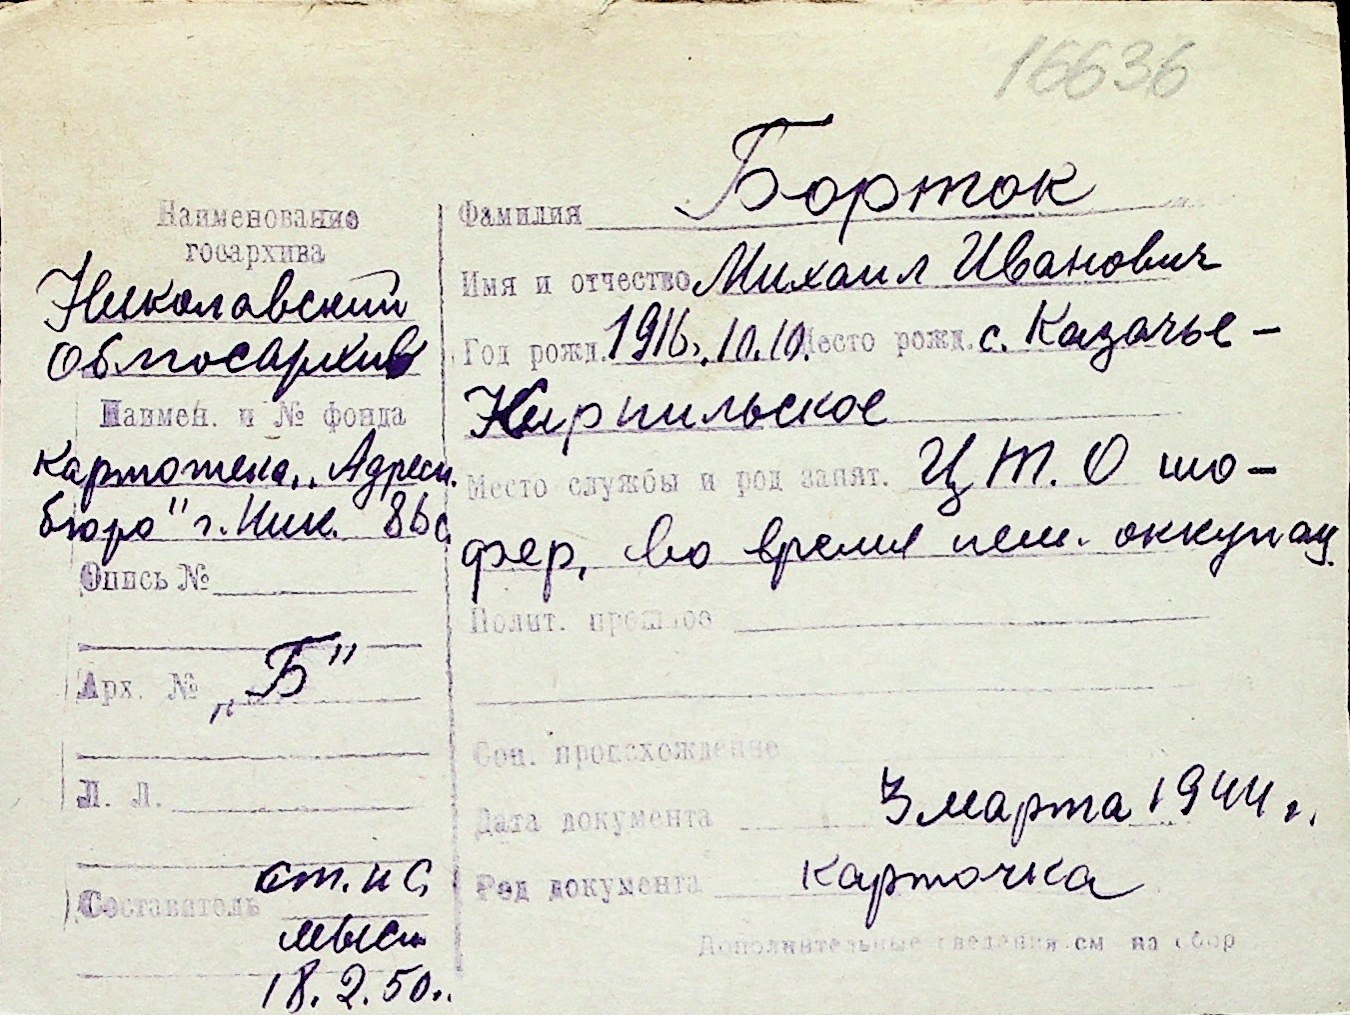 16636
Наименование
госархива
Николавский
Облгосархив
Наимен. и № фонда
картотека „Адресн.
бюро" г. Ник. 86с
Опись №
Арх. № „Б"
Л. Л.
Составитель ст. н с,
18.2.50.
Фамилия Борток
Имя и отчество Михаил Иванович
Год рожд. 1916. 10.10. Место рожд. с. Казачье-
Кирпильское
Место службы и род занят. Ц.Т.О шо-
фер, во время нем. оккупац.
Полит. прошлое
Соц. происхождение
Дата документа 3 марта 1944 г.
Род документа карточка
Дополнительные сведения см на обор